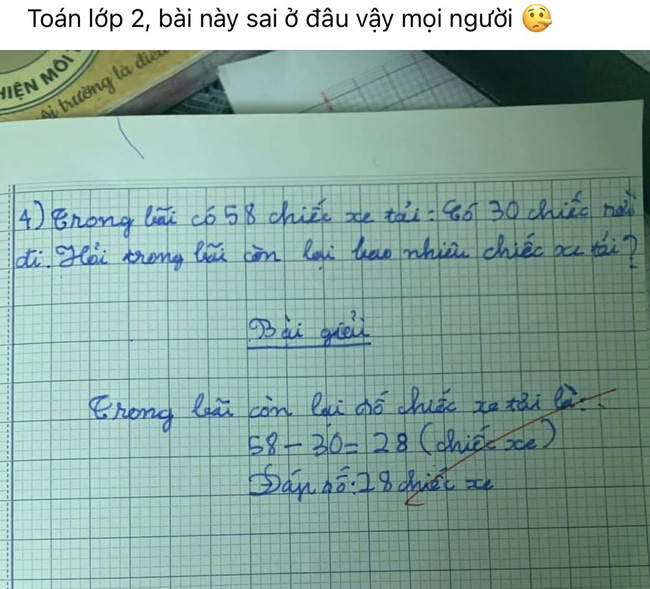 Toán lớp 2, bài này sai ở đâu vậy mọi người 🤥
HIỆN MÔI
ôi trường là điều
4) Trong bãi có 58 chiếc xe tải: Có 30 chiếc rời
đi. Hỏi trong bãi còn lại bao nhiêu chiếc xe tải?
Bài giải
Trong bãi còn lại số chiếc xe tải là:
58 - 30 = 28 (chiếc xe)
Đáp số: 28 chiếc xe